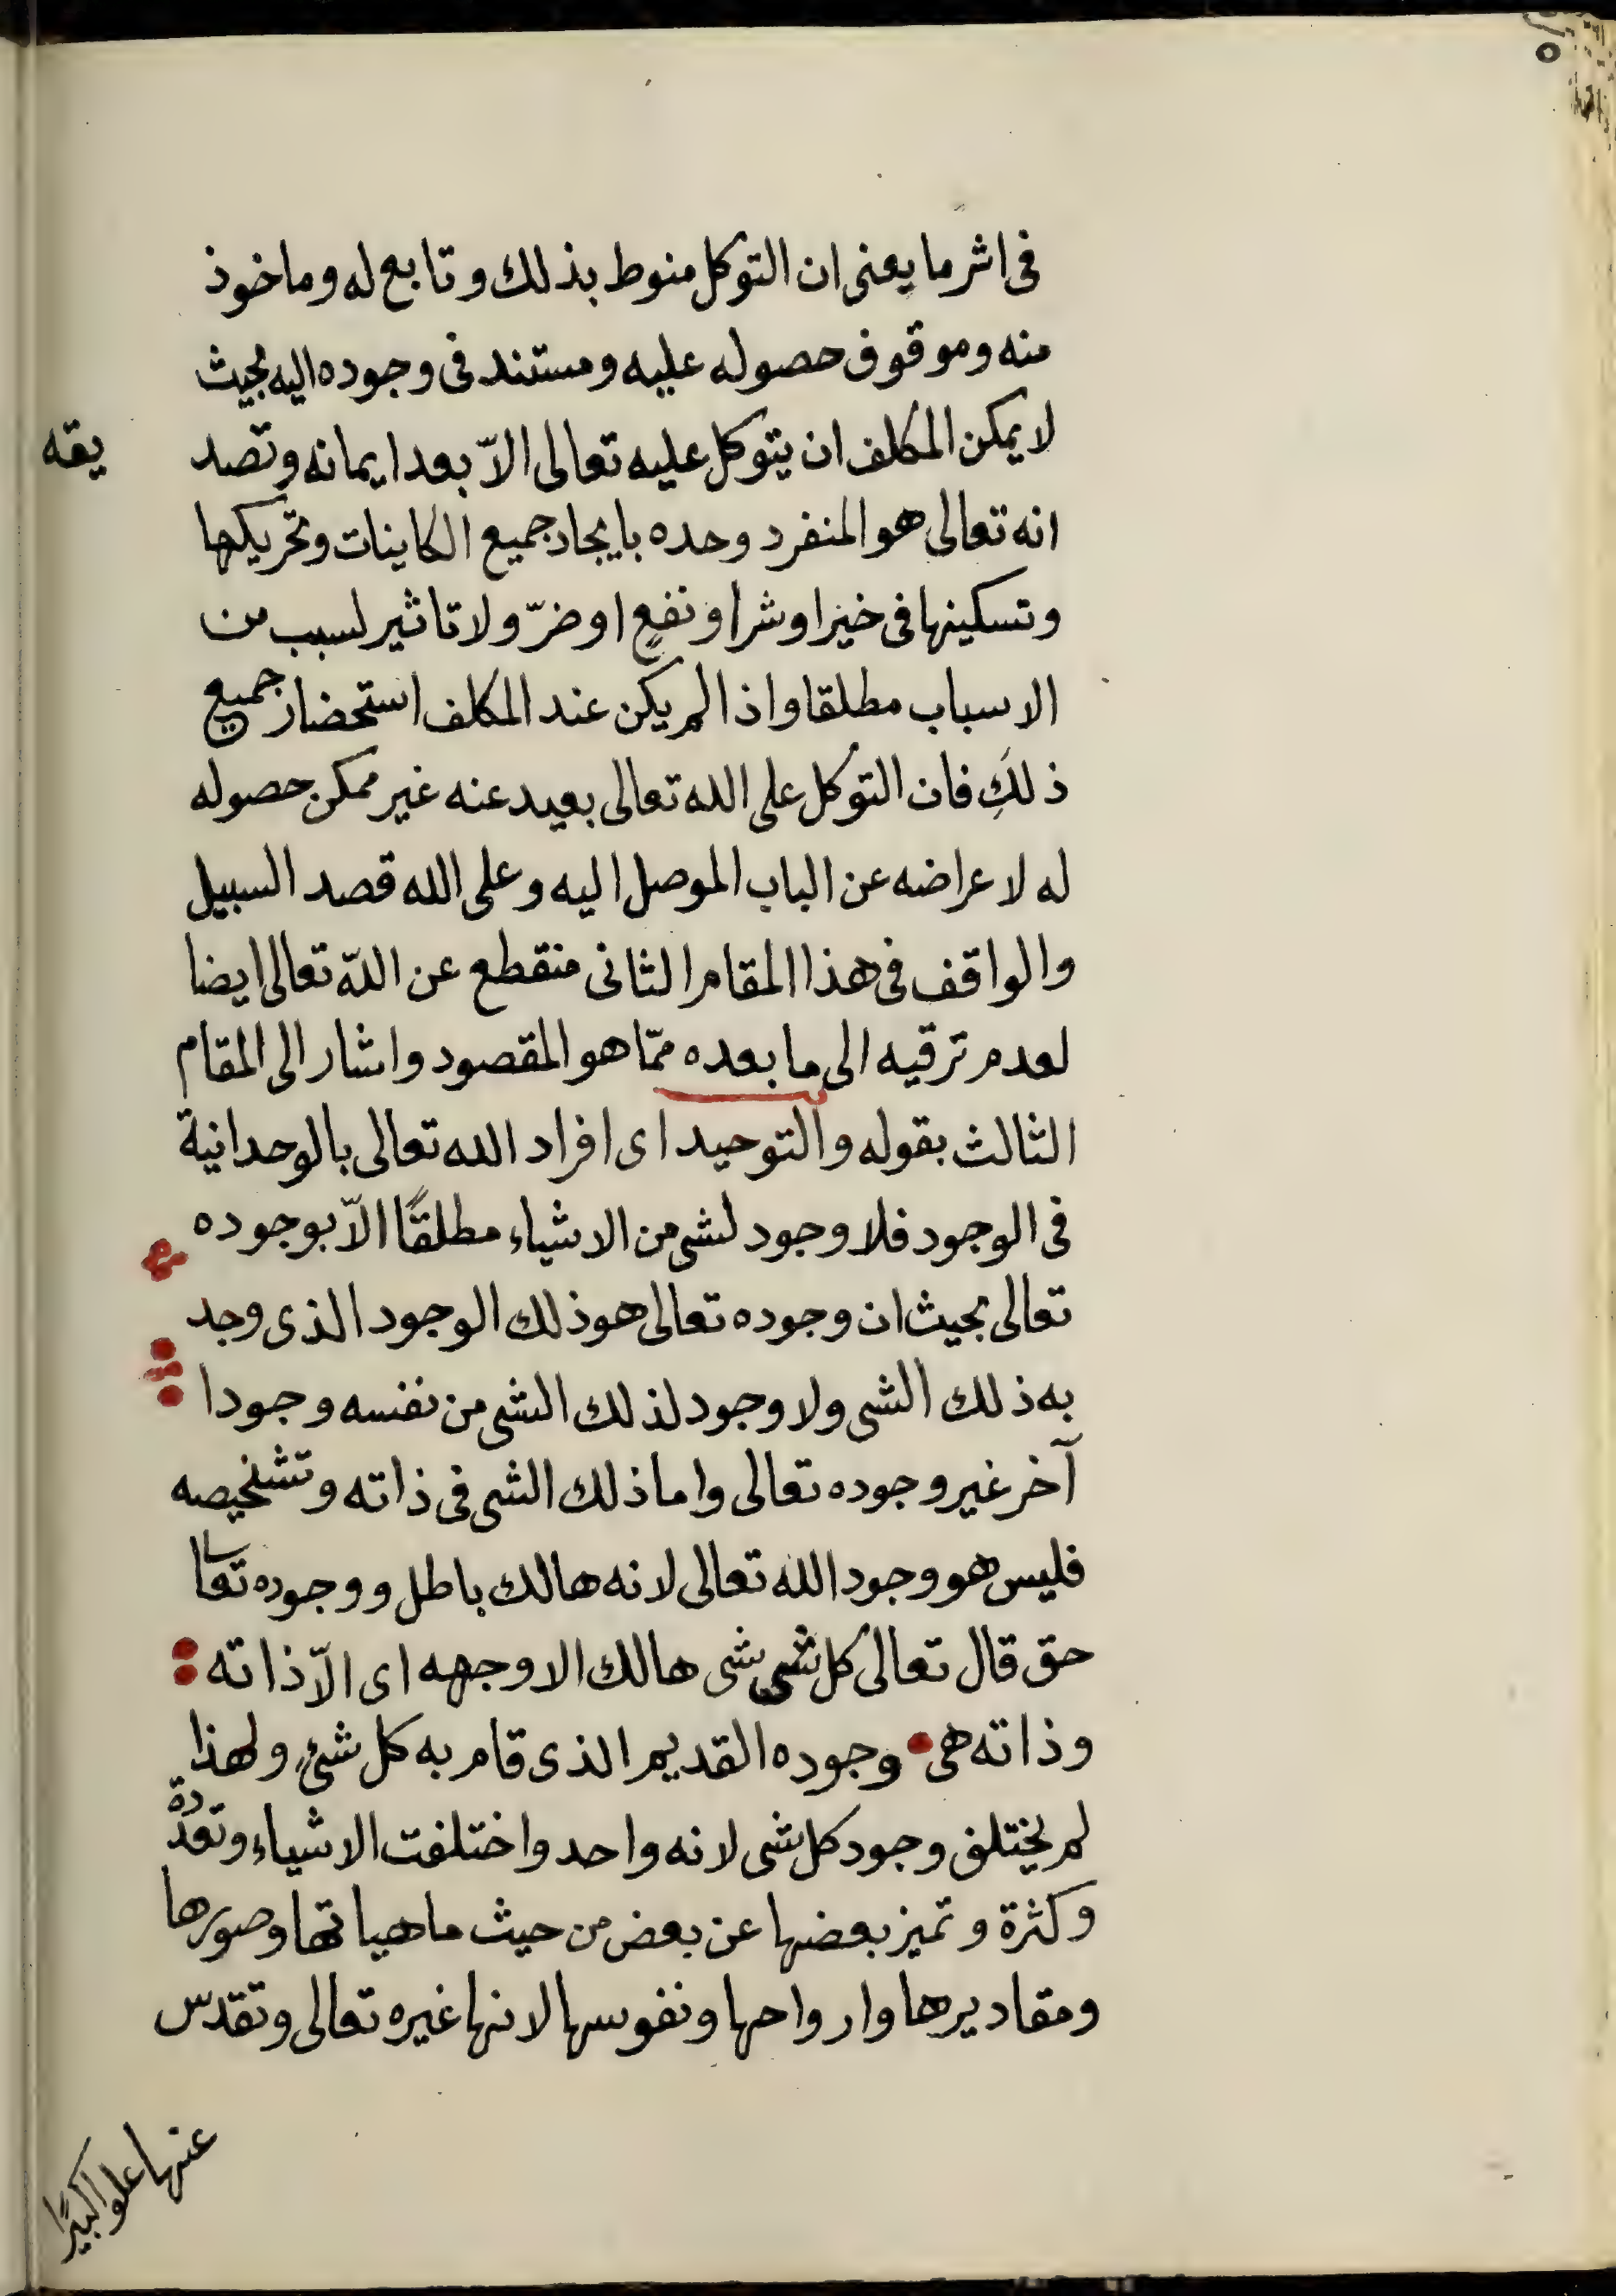 فى اثر ما يعنى ان التوكل منوط بذلك وتابع له وماخوذ
منه وموقوف حصوله عليه ومستند فى وجوده اليه بحيث
لا يمكن المكلف ان يتوكل عليه تعالى الاّ بعد ايمانه وتصد يقه
انه تعالى هو المنفرد وحده بايجاد جميع الكاينات وتحريكها
وتسكينها فى خير او شر او نفعٍ او ضرّ ولا تاثير لسبب من
الاسباب مطلقا واذا لم يكن عند المكلف استحضار جميع
ذلكَ فان التوكل على الله تعالى بعيد عنه غير ممكن حصوله
له لاعراضه عن الباب الموصل اليه وعلى الله قصد السبيل
والواقف فى هذا المقام الثانى منقطع عن اللّه تعالى ايضا
لعدم ترقيه الى ما بعده ممّا هو المقصود واشار الى المقام
الثالث بقوله والتوحيد اى افراد الله تعالى بالوحدانية
فى الوجود فلا وجود لشى من الاشياء مطلقًا الاّ بوجوده
تعالى بحيث ان وجوده تعالى هو ذلك الوجود الذى وجد
به ذلك الشى ولا وجود لذلك الشى من نفسه وجودا
آخر غير وجوده تعالى واما ذلك الشى فى ذاته وتشخيصه
فليس هو وجود الله تعالى لانه هالك باطل ووجوده تعا
حق قال تعالى كل شى شى هالك الا وجهه اى الاّ ذاته
وذاته هى وجوده القديم الذى قام به كل شئٍ ولهذا
لم يختلف وجود كل شى لانه واحد واختلفت الاشياء وتعدّدة
وكثرة وتميز بعضها عن بعض من حيث ماهياتها وصورها
ومقاديرها وارواحها ونفوسها لانها غيره تعالى وتقدّس
عنها علوا كبيرًا